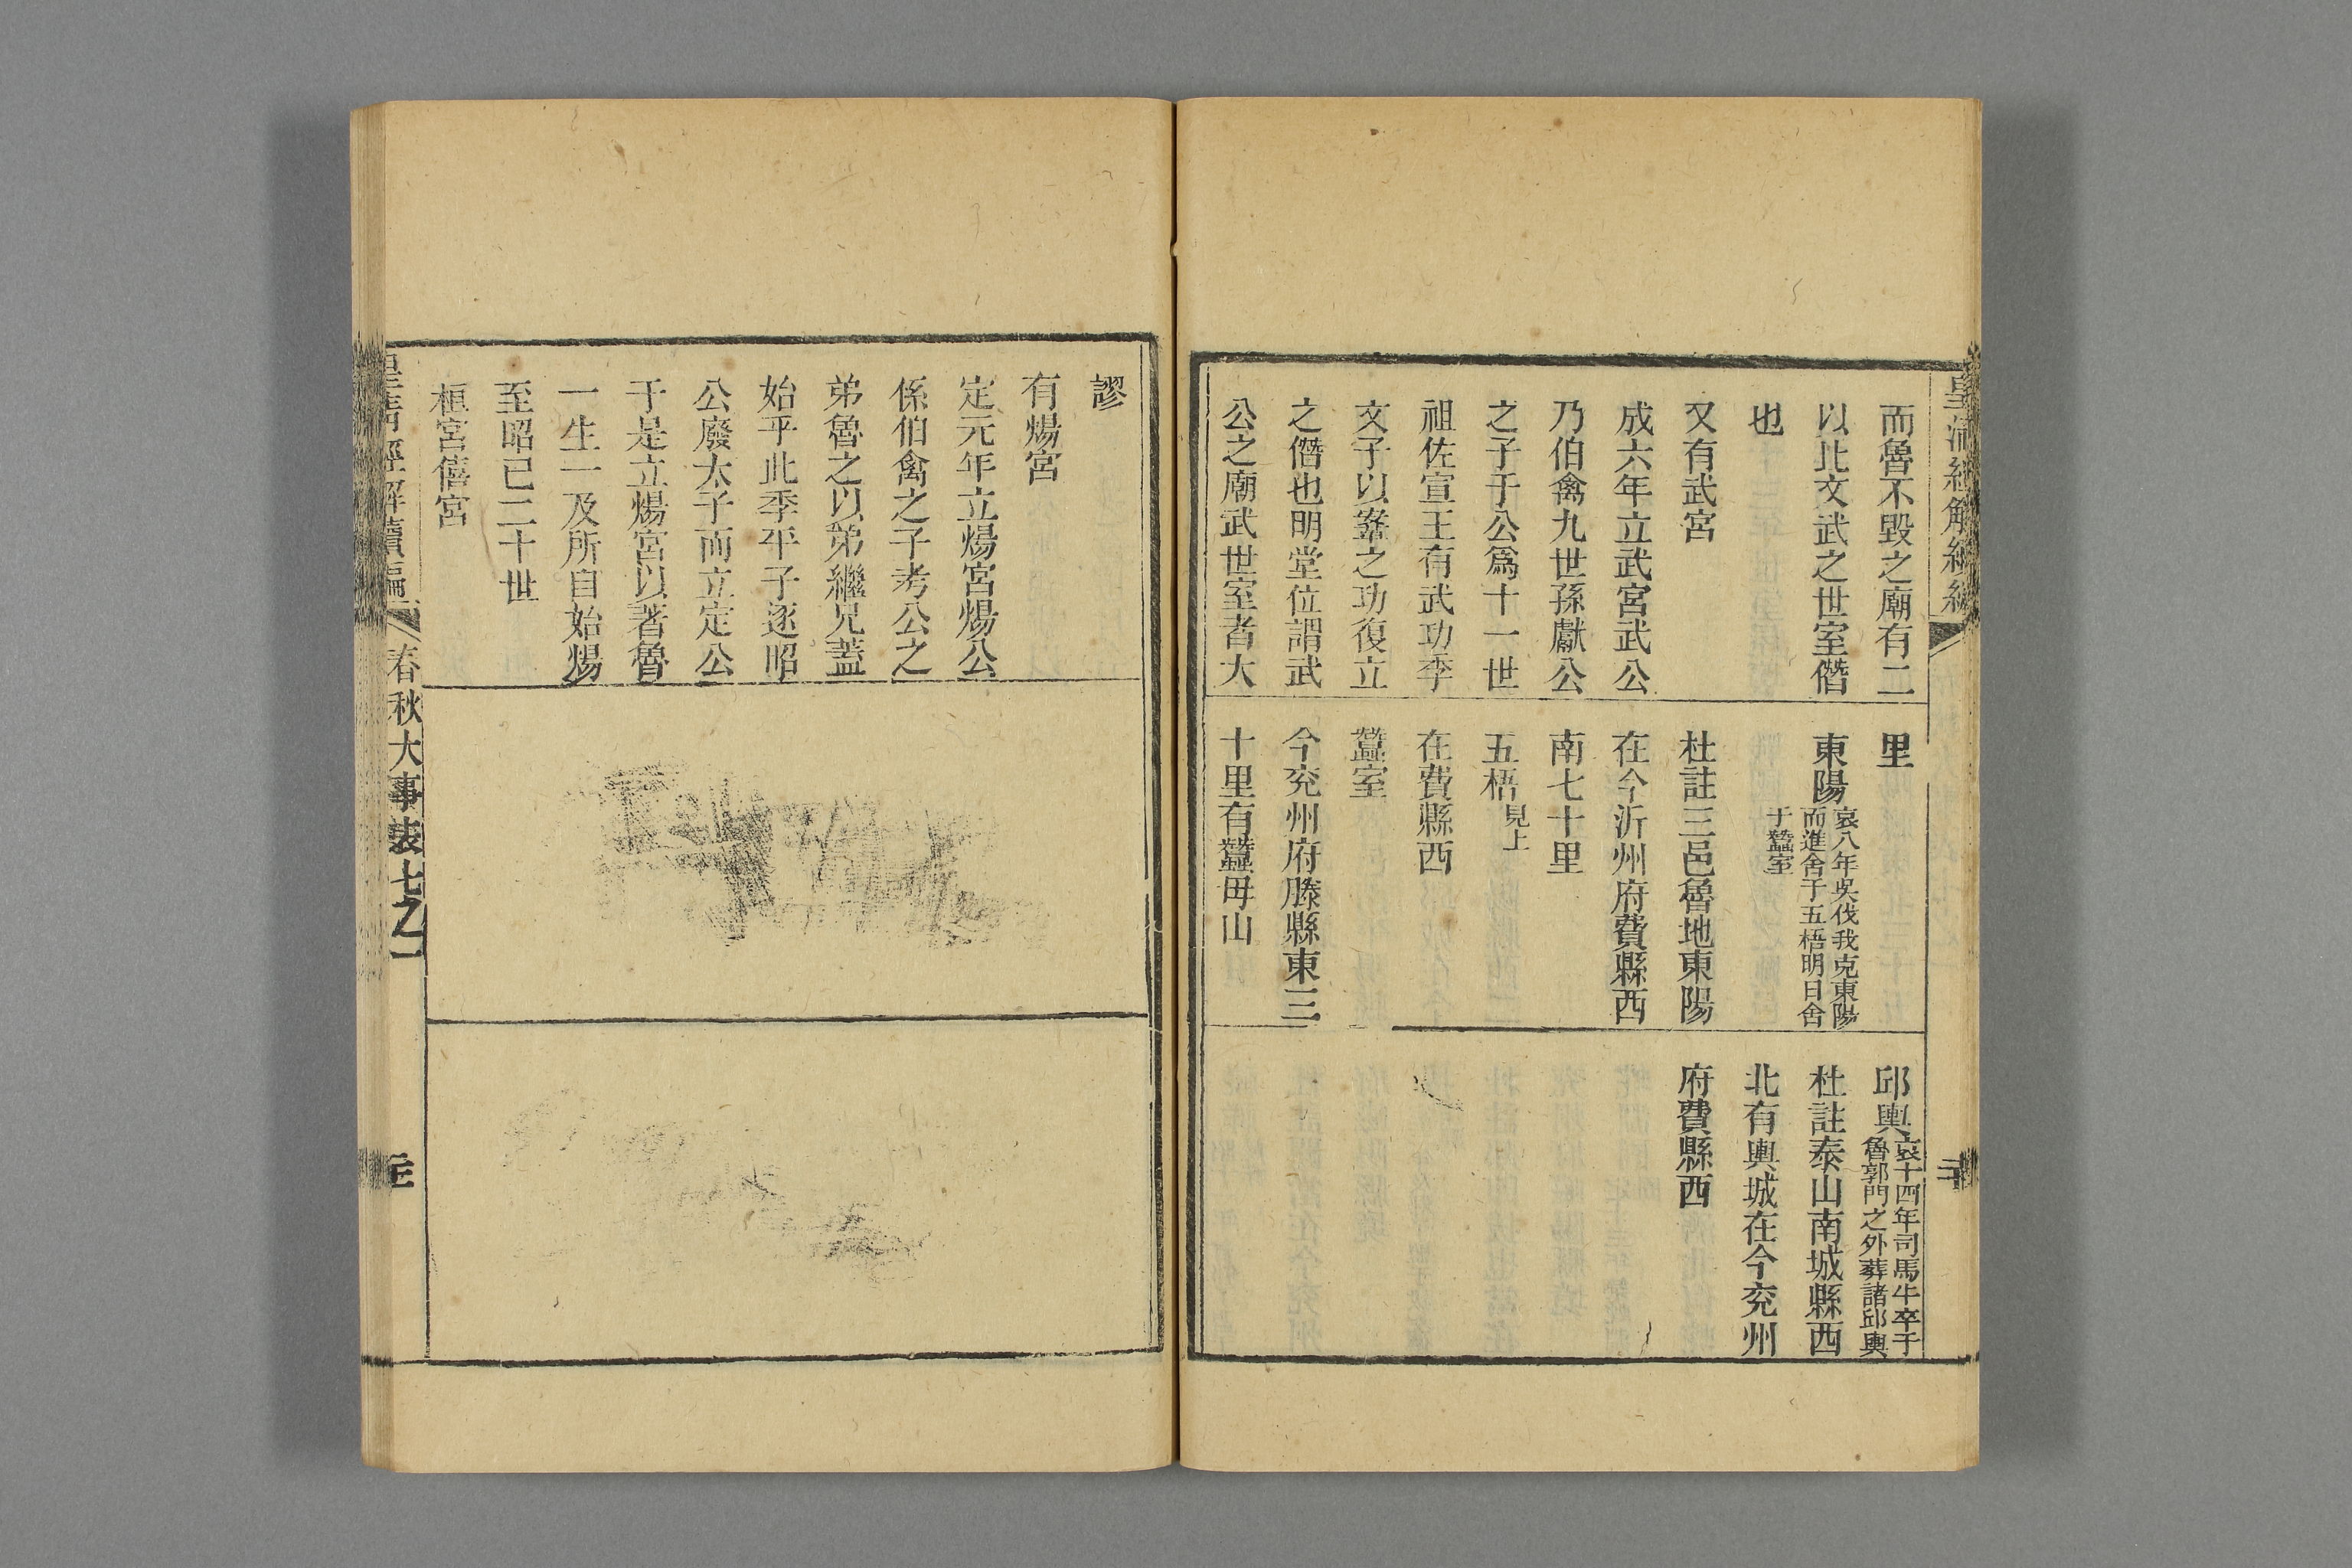 皇清經解續編
而魯不毀之廟有二
以此文武之世室僭
也
又有武宮
成六年立武宮武公
乃伯禽九世孫獻公
之子于公爲十一世
祖佐宣王有武功季
文子以鞌之功復立
之僭也明堂位謂武
公之廟武世室者大
里
東陽哀八年吳伐我克東陽
而進舍于五梧明日舍
于蠶室
杜註三邑魯地東陽
在今沂州府費縣西
南七十里
五梧見上
在費縣西
蠶室
今兖州府滕縣東三
十里有蠶毋山
邱輿哀十四年司馬牛卒于
魯郭門之外葬諸邱輿
杜註泰山南城縣西
北有輿城在今兖州
府費縣西
謬
有煬宮
定元年立煬宮煬公
係伯禽之子考公之
弟魯之以弟繼兄蓋
始乎此季平子逐昭
公廢太子而立定公
于是立煬宮以著魯
一生一及所自始煬
至昭已二十世
桓宮僖宮
皇清經解續編
春秋大事表七之一